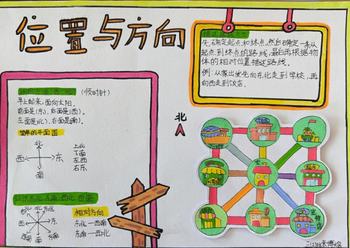 位置与方向
先确定起点和终点,然后确定一条从
起点到终点的路线,最后再根据物
体的相对位置描述路线。
例:从家出发先向东北走到学校,再
向西走到饭店。
(顺时针)
早上起来,面向太阳。
前面是(东),后面是(西)。
左面是(北),右面是(南)。
简单的平面图
北
西 东
南
上北
下南
左西
右东
相对方向
东北—西南
东南—西北
北